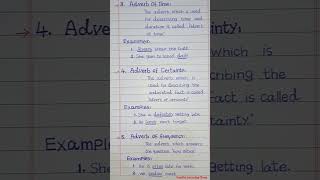 3. Adverb of Time:
The adverb which is used
for describing time and
duration is called 'adverb
of time'.
Examples:
1. Always brush the teeth.
2. She goes to school daily.
4. Adverb of Certainty:
The adverb which is
used for describing the
understood fact is called
'adverb of certainty'.
Examples:
1. She is definitely getting late.
2. He surely meet himself.
5. Adverb of Frequency:
The adverb, which answers
the question 'how often'.
Examples:
1. He is often late for work.
2. We seldom meet.
4. Adverb
which is
cribing the
fact is called
tainty'.
Examples
1. She
getting late.